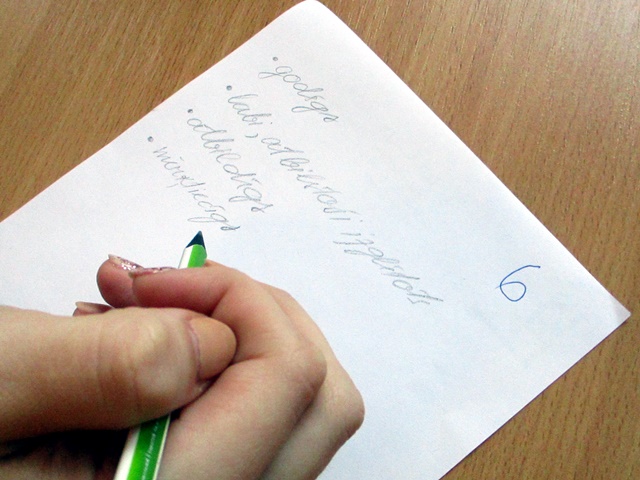 • godīgs
• labi, atbilstoši izglītots
• atbildīgs
• mērķtiecīgs
6